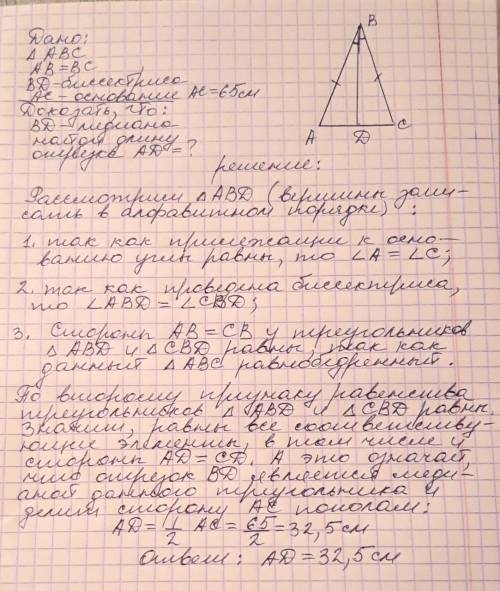 Дано:
△ ABC
AB=BC
BD-биссектриса
AC-основание AC=65см
Доказать, что:
BD-медиана
найти длину
отрезка AD=?
B
A
D
C
решение:
Рассмотрим △ABD (вершины запи-
сать в алфавитном порядке):
1. так как прилежащие к осно-
ванию углы равны, то ∠A=∠C;
2. так как проведена биссектриса,
то ∠ABD=∠CBD;
3. Стороны AB=CB у треугольников
△ ABD и △CBD равны, так как
данный △ABC равнобедренный.
По второму признаку равенства
треугольников △ ABD и △CBD равны.
Значит, равны все соответству-
ющие элементы, в том числе и
стороны AD=CD. А это означает,
что отрезок BD является меди-
аной данного треугольника и
делит сторону AC пополам:
AD= 1/2 AC= 65/2 =32,5см
Ответ: AD=32,5см